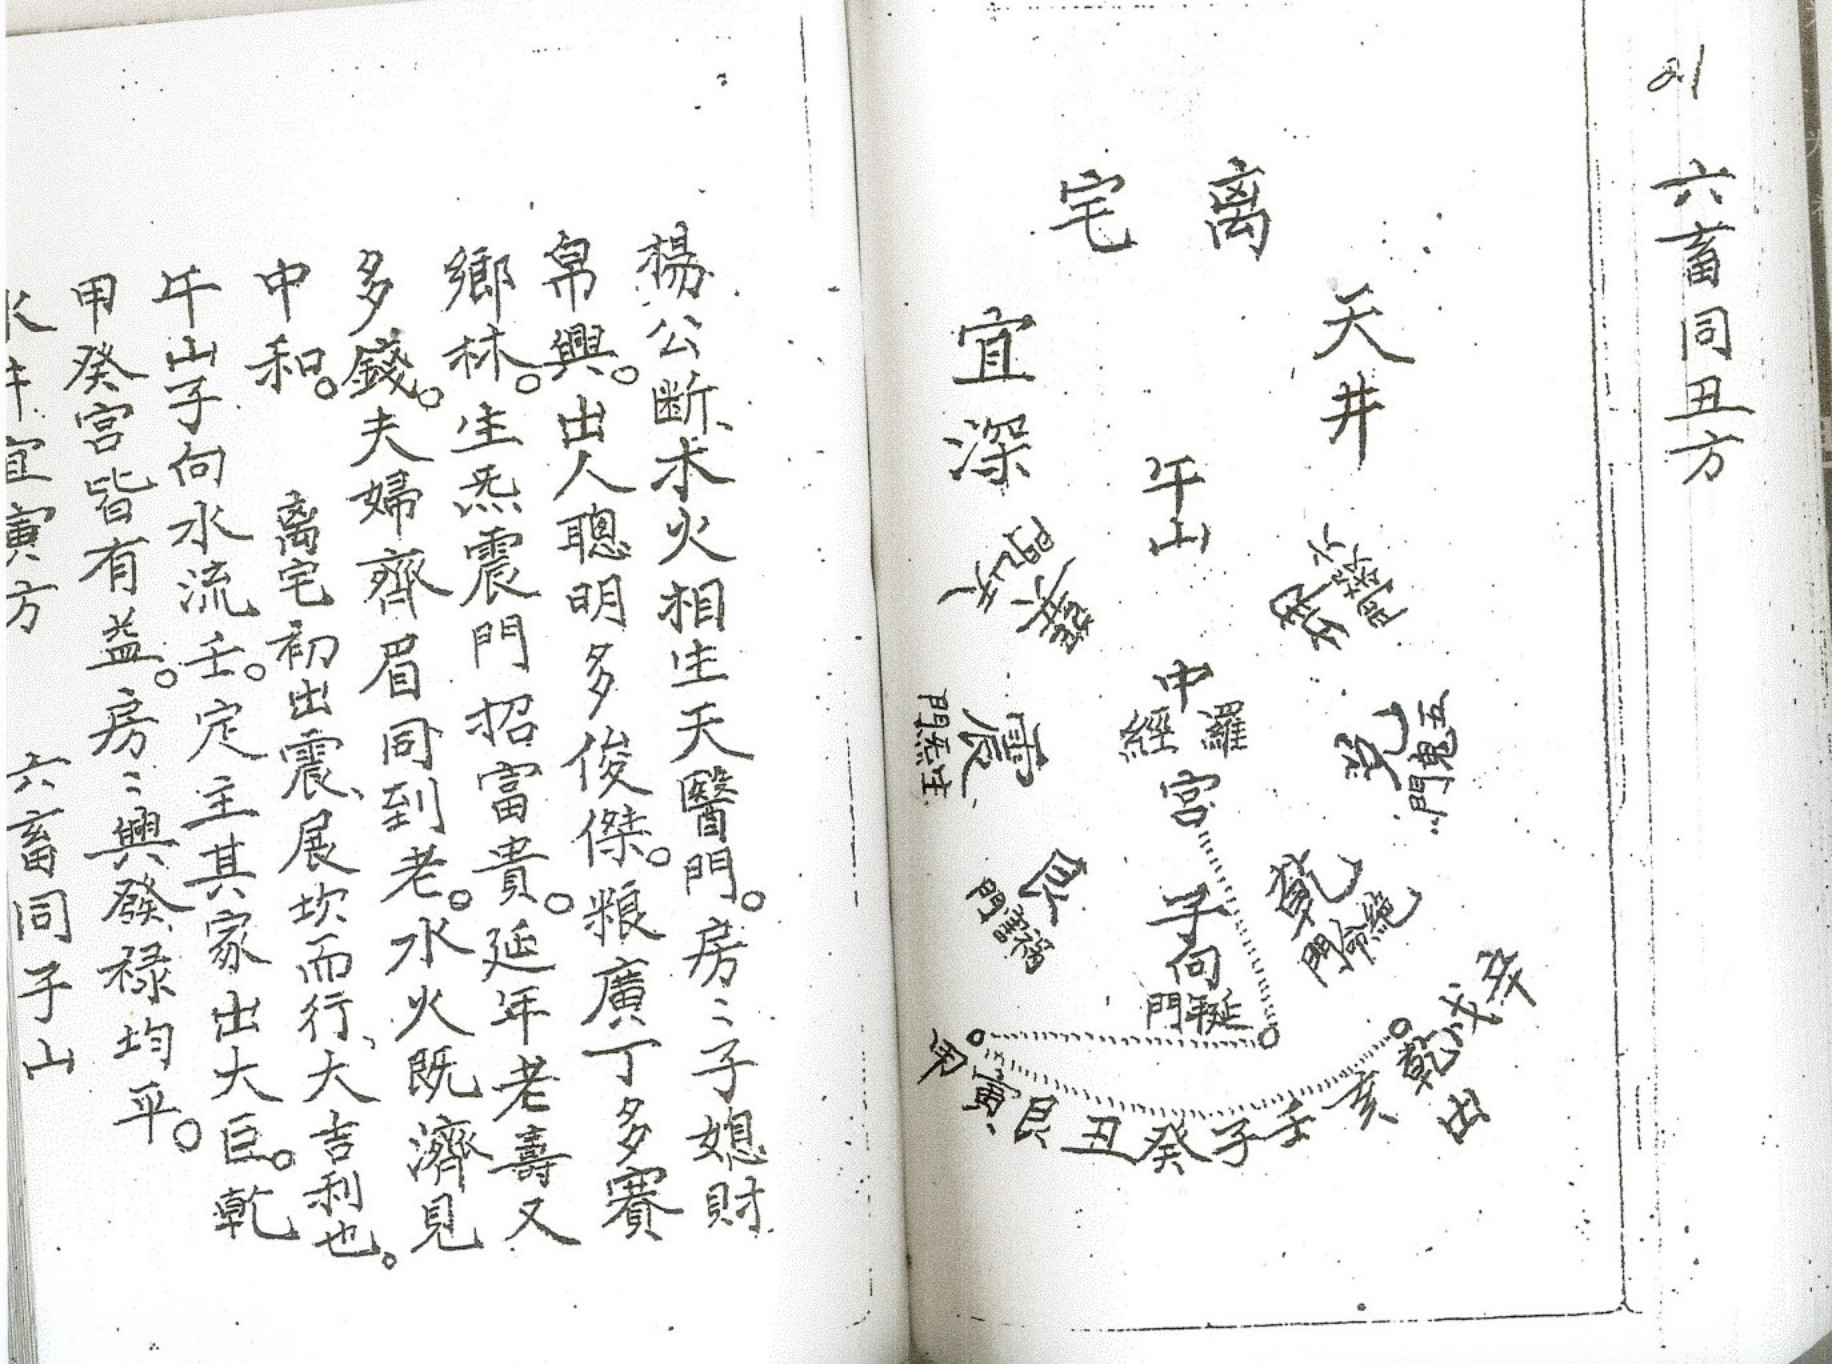 21
六畜同丑方
离宅
天井
宜深
午山
坤
六煞門
巽
天門
中宮
羅經
兌
五鬼門
震
生炁門
乾
絕命門
艮
禍害門
子向
延年門
辛戌乾亥壬子癸丑艮寅甲
出
楊公斷、木火相生天醫門。房〻子媳財
帛興。出人聰明多俊傑。粮廣丁多賽
鄉林。生炁震門招富貴。延年老壽又
多錢。夫婦齊眉同到老。水火既濟見
中和。 离宅初出震、展坎而行、大吉利也。
午山子向水流壬。定主其家出大巨。乾
甲癸宮皆有益。房〻興發祿均平。
水井宜寅方 六畜同子山